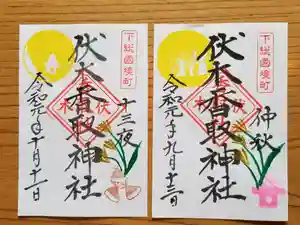 下総國境町
伏木香取神社
伏木
十三夜
令和元年十月十一日
下総國境町
伏木香取神社
伏木
仲秋
令和元年九月十三日